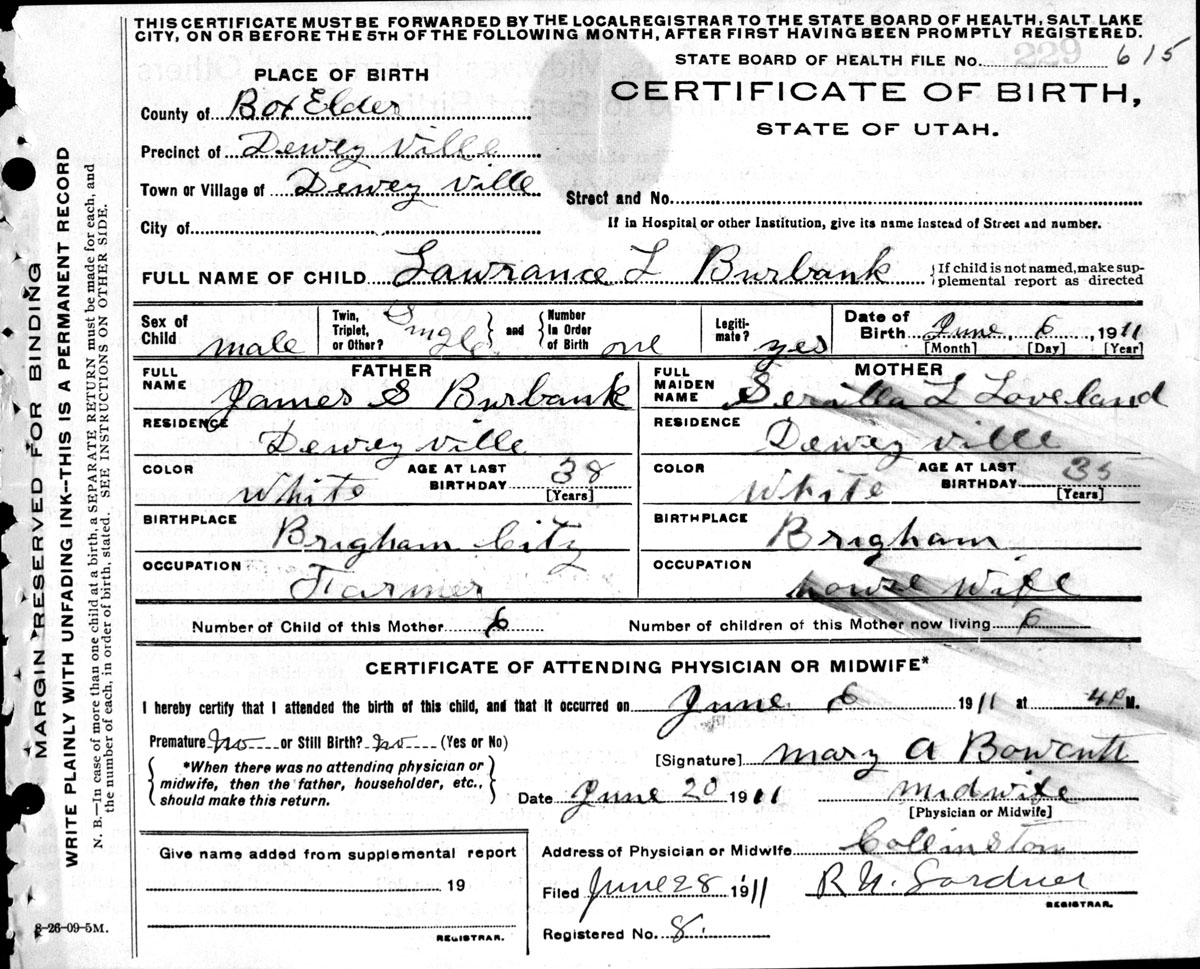 THIS CERTIFICATE MUST BE FORWARDED BY THE LOCALREGISTRAR TO THE STATE BOARD OF HEALTH, SALT LAKE
CITY, ON OR BEFORE THE 5TH OF THE FOLLOWING MONTH, AFTER FIRST HAVING BEEN PROMPTLY REGISTERED.
STATE BOARD OF HEALTH FILE No. 229 615
PLACE OF BIRTH
CERTIFICATE OF BIRTH,
STATE OF UTAH.
County of Box Elder
Precinct of Dewey ville
Town or Village of Dewey ville
Street and No.
City of
If in Hospital or other Institution, give its name instead of Street and number.
FULL NAME OF CHILD Lawrance L Burbank
{If child is not named, make sup-
plemental report as directed
Sex of Child male
Twin, Triplet, or Other? Single } and { Number In Order of Birth one
Legiti-mate? yes
Date of Birth June 6, 1911
[Month] [Day] [Year]
FATHER
FULL NAME James S Burbank
RESIDENCE Dewey ville
COLOR White AGE AT LAST BIRTHDAY 38
[Years]
BIRTHPLACE Brigham City
OCCUPATION Farmer
MOTHER
FULL MAIDEN NAME L Loveland
RESIDENCE Dewey ville
COLOR White AGE AT LAST BIRTHDAY 35
[Years]
BIRTHPLACE Brigham
OCCUPATION house wife
Number of Child of this Mother 6 Number of children of this Mother now living 6
CERTIFICATE OF ATTENDING PHYSICIAN OR MIDWIFE*
I hereby certify that I attended the birth of this child, and that it occurred on June 6 1911 at 4P M.
Premature? No or Still Birth? No (Yes or No)
{ *When there was no attending physician or
midwife, then the father, householder, etc.,
should make this return. }
[Signature] Mary A
Date June 20 1911 midwife
[Physician or Midwife]
Give name added from supplemental report
19
REGISTRAR.
Address of Physician or Midwife Collinston
Filed June 28 1911 R N. Gardner
REGISTRAR.
Registered No. 8.
8-26-09-5M.
MARGIN RESERVED FOR BINDING
WRITE PLAINLY WITH UNFADING INK--THIS IS A PERMANENT RECORD
N. B.—In case of more than one child at a birth, a SEPARATE RETURN must be made for each, and
the number of each, in order of birth, stated. SEE INSTRUCTIONS ON OTHER SIDE.